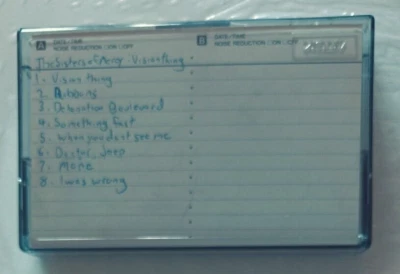 A DATE/TIME
NOISE REDUCTION □ON □OFF
B DATE/TIME
NOISE REDUCTION □ON □OFF
The Sisters of Mercy Vision thing
1 - Vision thing
2. Ribbons
3. Detonation Boulevard
4. Something Fast
5 - When you dont see me
6 - Doctor Jeep
7 - More
8 I was wrong